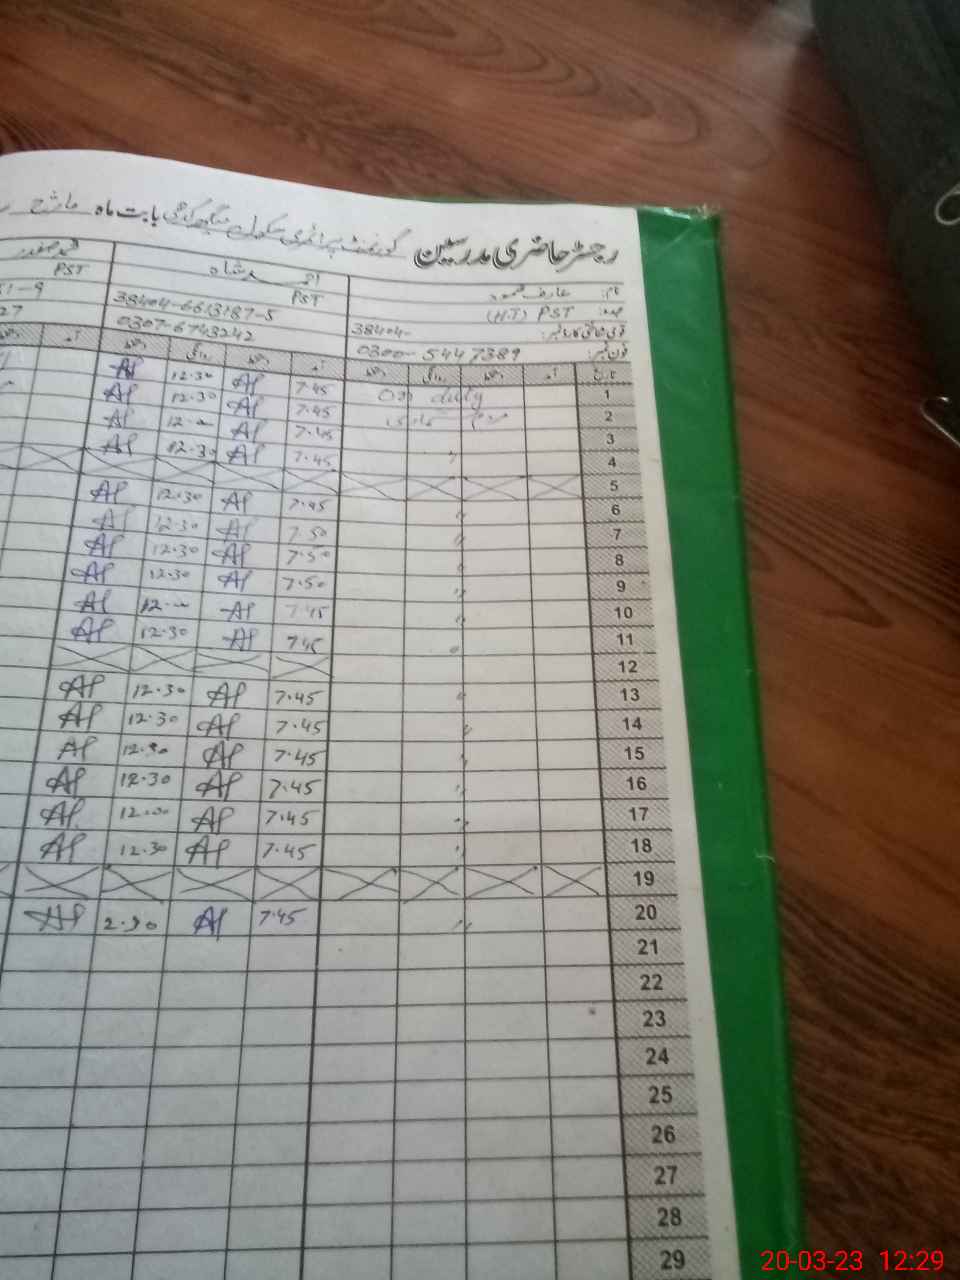 رجسٹر حاضری مدرسین گورنمنٹ پرائمری سکول بابت ماہ مارچ
نام: عارف محمود
شاہ
عہدہ: PST (H.T)
PST
PST
38404-
38404-6613187-5
51-9
فون نمبر: 0300-5447389
0307-6743242
27
تاریخ آمد دستخط روانگی دستخط آمد دستخط روانگی دستخط آمد
1 On duty 7.45 Al 12.30 Al
2 7.45 Al 12.30 Al
3 7.45 Al 12.- Al
4 " 7.45 Al 12.30 Al
5
6 " 7.45 Al 12.30 Al
7 " 7.50 Al 12.30 Al
8 " 7.50 Al 12.30 Al
9 " 7.50 Al 12.30 Al
10 " 7.45 Al 12.- Al
11 " 7.45 Al 12.30 Al
12
13 " 7.45 Al 12.30 Al
14 " 7.45 Al 12.30 Al
15 " 7.45 Al 12.30 Al
16 " 7.45 Al 12.30 Al
17 " 7.45 Al 12.00 Al
18 " 7.45 Al 12.30 Al
19
20 " 7.45 Al 2.30 Al
21
22
23
24
25
26
27
28
29
20-03-23 12:29